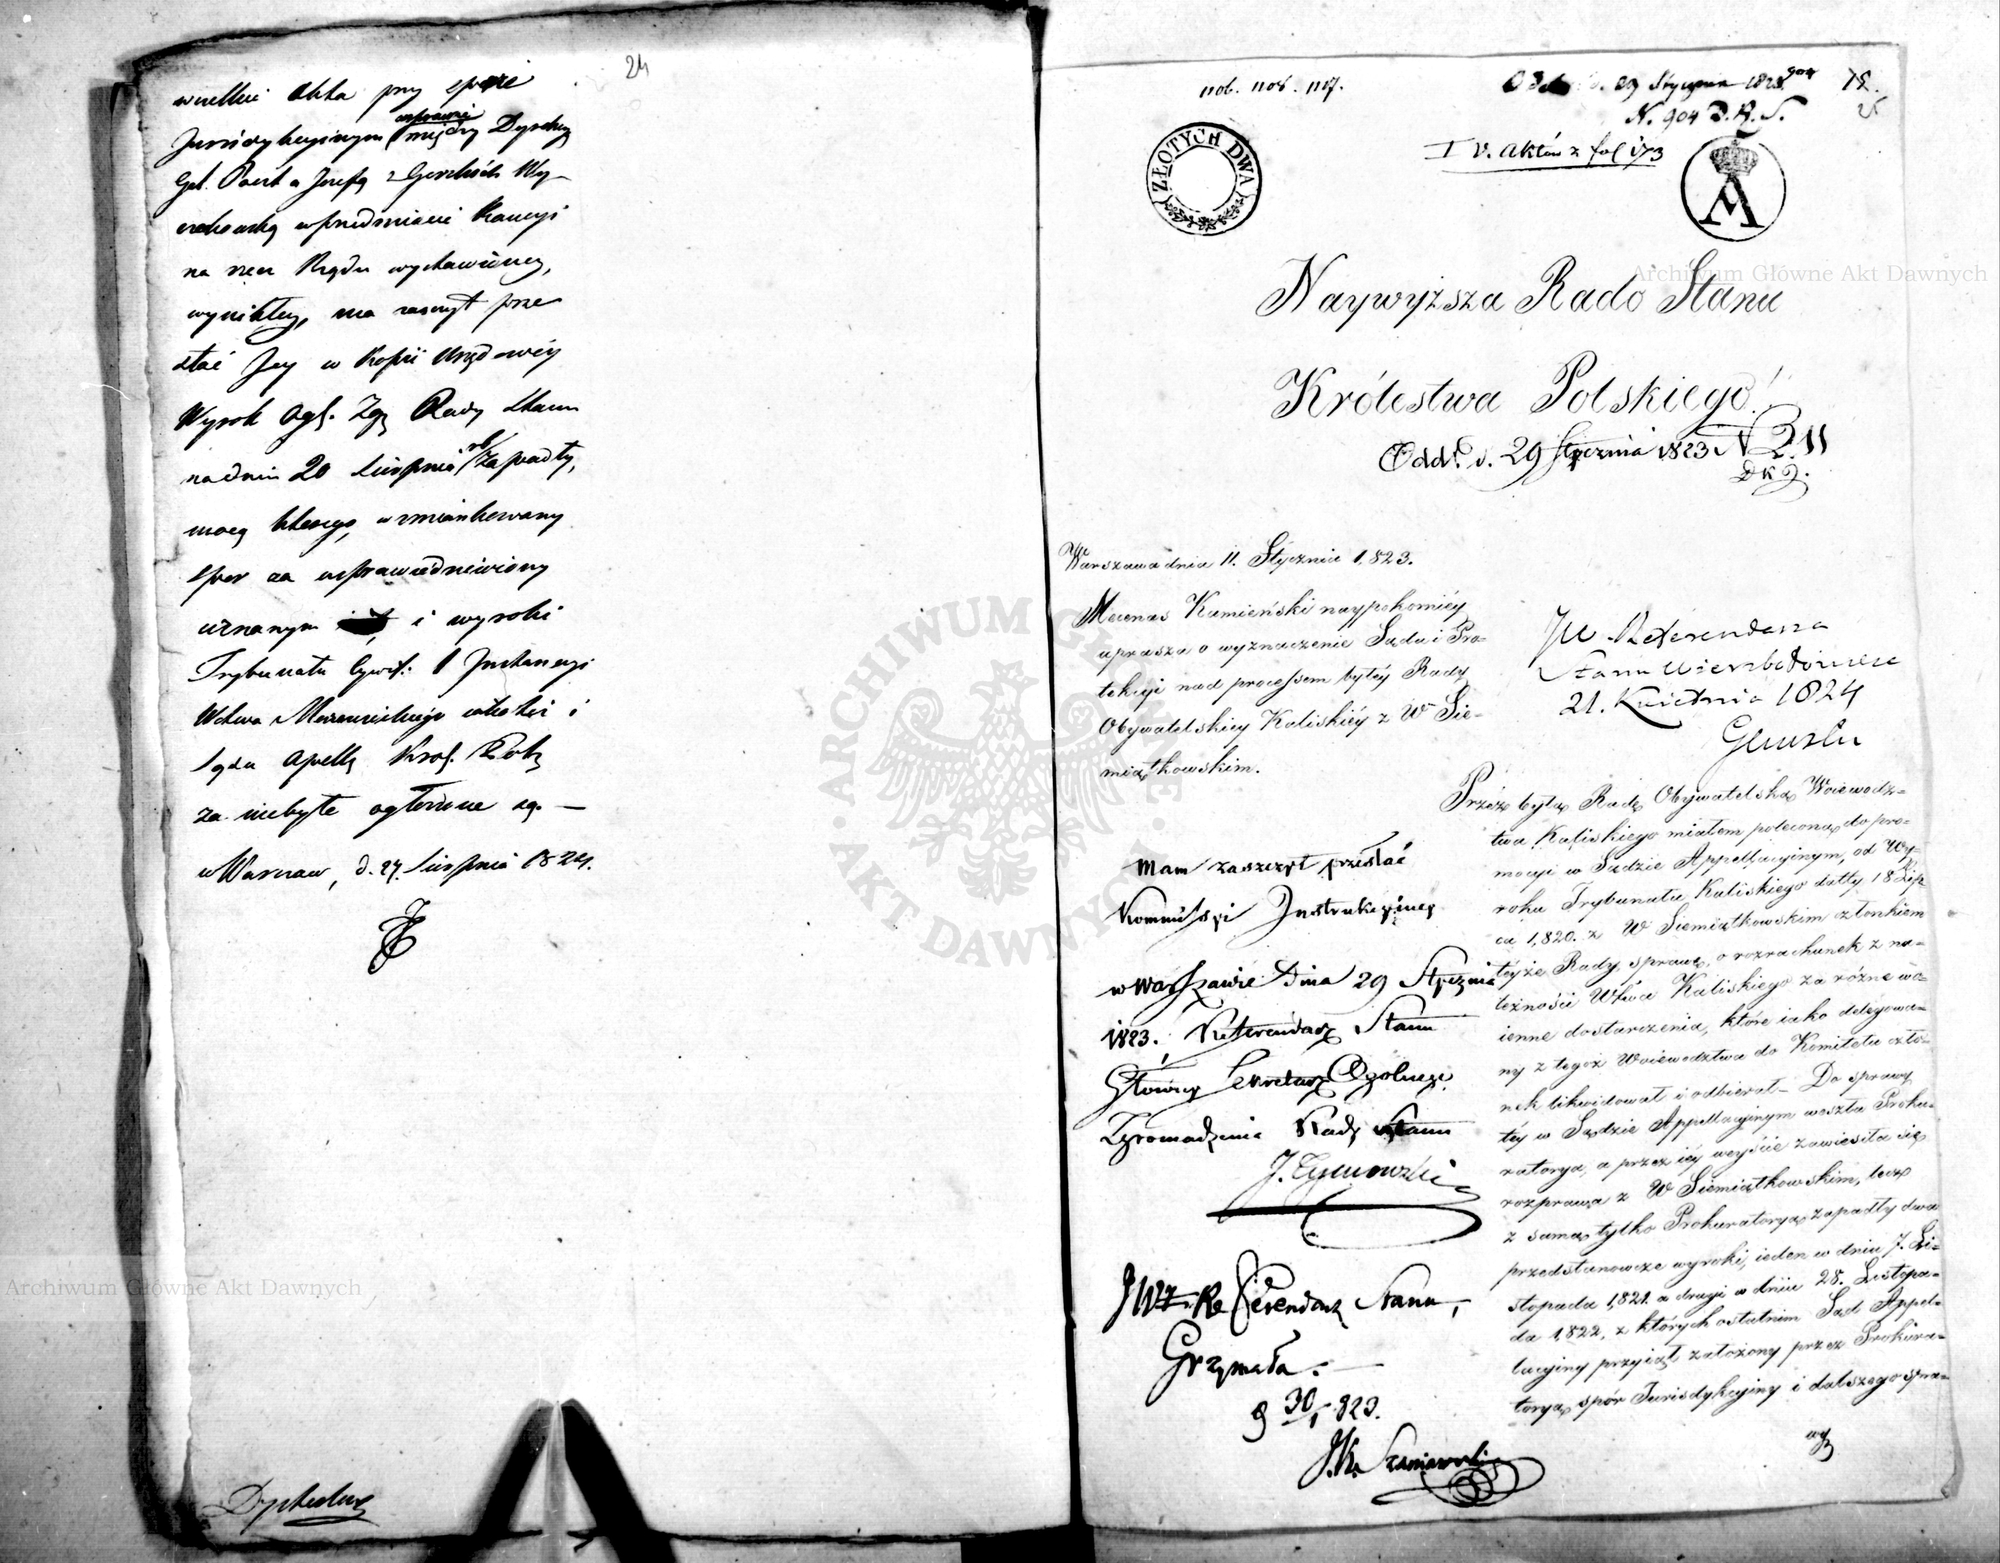 24
wszelkie Akta przy sporze
Jurisdykcyjnym w sprawie między Dyrekcyą
Gel. Poczt a Jozefą z Gorskich Wy-
w przedmiocie Kaucyi
na rzecz Rządu wystawioney,
wynikłey, ma zaszczyt prze
słać Jey w Kopii Urzędowéy
Wyrok Ogl. Zgr. Rady Stanu
na dniu 20 Sierpnia rb. zapadły,
mocą którego, wzmiankowany
spor za usprawiedliwiony
uznanym i wyroki
Trybunału Cywil: I Instancyi
Wdztwa Mazowieckiego iakoteż i
Sądu Apell. Krol. Polsk.
za niebyłe ogłoszone są. —
w Warszaw, d. 27. Sierpnia 1824.
1106. 1108. 1117.
29 Stycznia 1823
N. 904 D.R.S.
I V. Aktów z fol 173
ZŁOTYCH DWA
Naywyższa Rado Stanu
Królestwa Polskiego!
Odd. d. 29 Stycznia 1823 N 211
Warszawa dnia 11. Stycznia 1,823.
Mecenas Kamieński naypokorniéy
uprasza o wyznaczenie Sądu i Pro-
tekcyi nad processem byłéy Rady
Obywatelskiéy Kaliskiéy z W Sie-
miątkowskim.
JW. Referendarza
Stanu Wierzbołowicza
21. Kwietnia 1824
Przéz byłą Radę Obywatelską Woiewódz-
twa Kaliskiego miałem poleconą do pro-
mocyi w Sądzie Appellacyjnym, od Wy-
roku Trybunału Kaliskiego datty 18 Lip-
ca 1,820. z W Siemiątkowskim członkiem
téyże Rady, sprawę, o rozrachunek z na-
leżności Wdztwa Kaliskiego za różne wo-
ienne dostarczenia, które iako delegowa-
ny z tegoż Woiewództwa do Komitetu czło-
nek likwidował i odbierał — Do sprawy
téy w Sądzie Appellacyjnym weszła Proku-
ratorya, a przez iéy weyście zawiesiła się
rozprawa z W Siemiątkowskim, lecz
z samą tylko Prokuratoryą, zapadły dwa
przedstanowcze wyroki, ieden w dniu 7. Li-
stopada 1,821. a drugi w dniu 28. Listopa-
da 1,822, z których ostatnim Sąd Appel-
lacyiny przyiął założony przez Prokura-
toryą, spór Jurisdykcyiny i dalszego spra-
Mam zaszczyt przesłać
Kommissyi Instrukcyiney
w Warszawie Dnia 29 Stycznia
1823. Referendarz Stanu
Główny Sekretarz Ogólnego
Zgromadzenia Rady Stanu
J. Tymowski
JWz. Referendarz Stanu,
Grzymała. —
d 30/1 823.
J. K. Szaniawski
Archiwum Główne Akt Dawnych
ARCHIWUM GŁÓWNE AKT DAWNYCH
Archiwum Główne Akt Dawnych